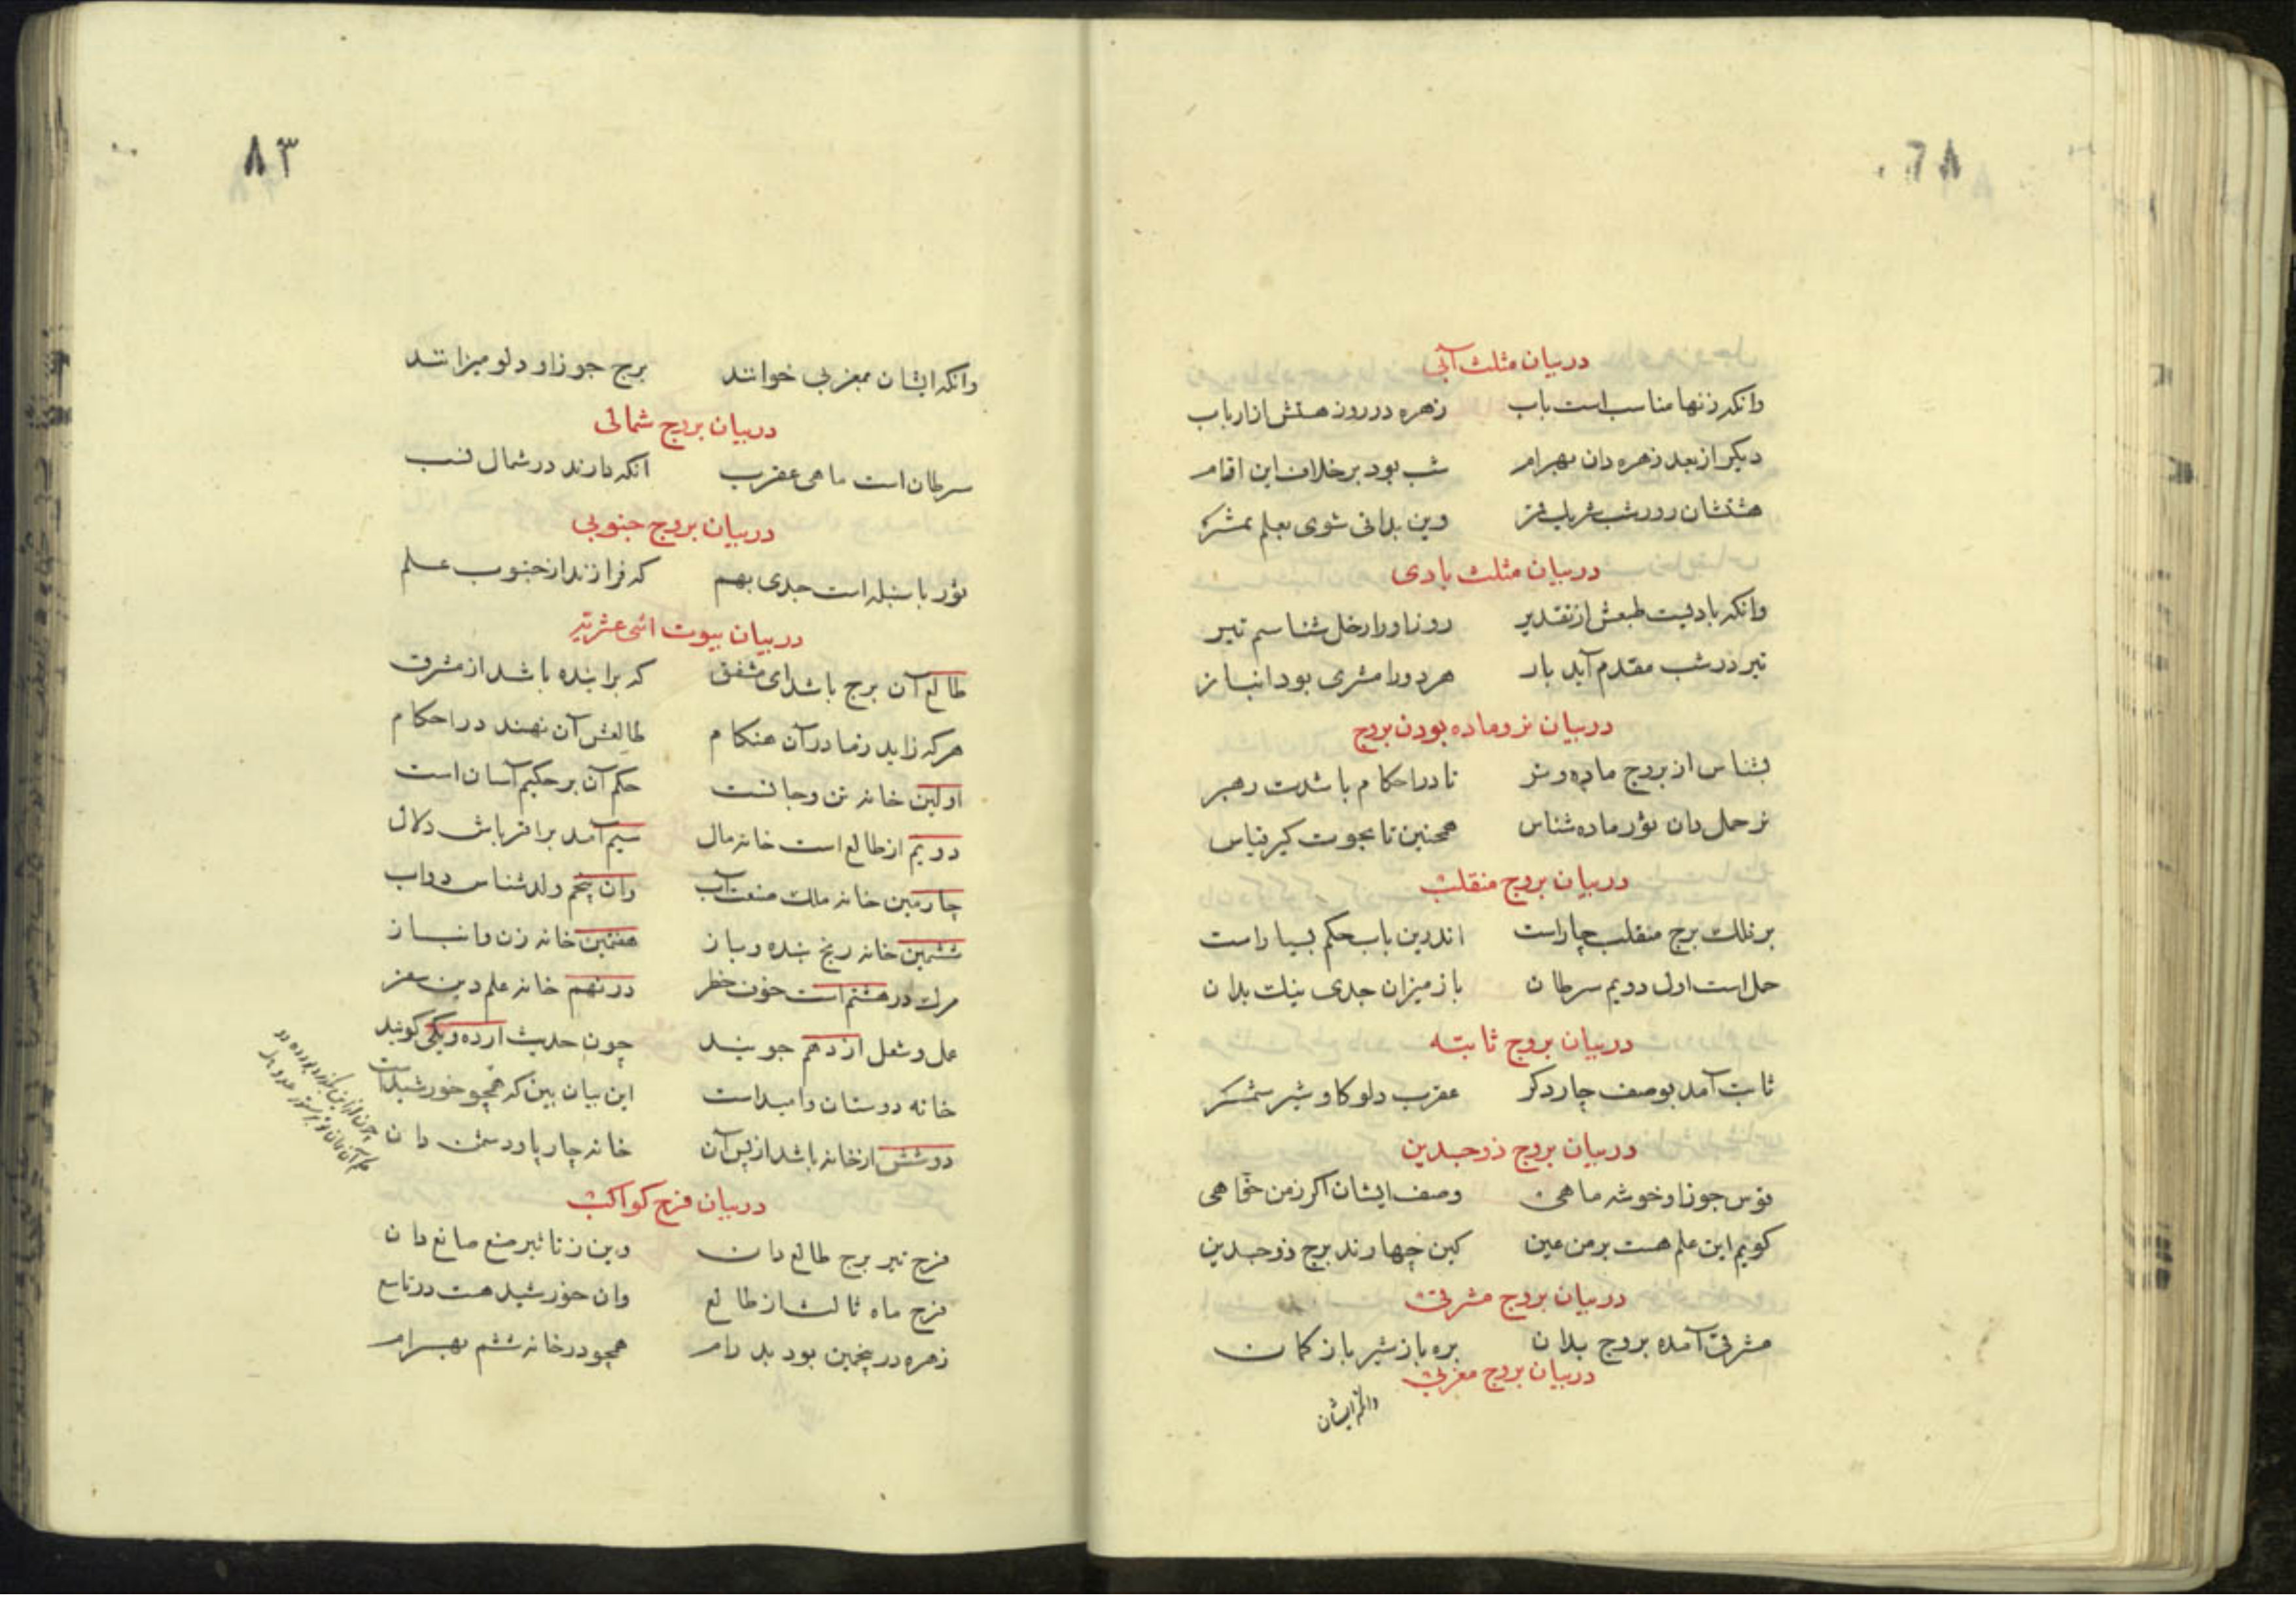 ۸۲
در بیان مثلث آبی
وانکه زنها مناسب است باب زهره در روز هستش از ارباب
دیکر از بعد زهره دان بهرام شب بود بر خلاف این اقام
وین بدانی شوی بعلم سمر
در بیان مثلث بادی
وانکه بادیست طبعش از تقدیر روز اورا زحل شناسم تیر
تیر در شب مقدم آید بار هر دو را مشری بود انباز
در بیان نر و ماده بودن بروج
بشناس از بروج ماده و نر تا در احکام باشدت رهبر
نر حمل دان ثور ماده شناس همچنین تا بحوت کیر قیاس
در بیان بروج منقلب
بر فلک برج منقلب چار است اندرین باب حکم بسیار است
حمل است اول دویم سرطان باز میزان جدی نیک بدان
در بیان بروج ثابته
ثابت آمد بوصف چار دکر عقرب دلو کاو شیر شمر
در بیان بروج ذو جسدین
قوس جوزا و خوشه ماهی وصف ایشان اکر ز من خواهی
کویم این علم هست بر من عین کین چهارند برج ذو جسدین
در بیان بروج مشرقی
مشرقی آمده بروج بدان بره باز شیر باز کمان
در بیان بروج مغربی
وانکه ایشان
۸۳
وانکه ایشان بمغربی خوانند برج جوزا و دلو میزانند
در بیان بروج شمالی
سرطان است ماهی عقرب انکه دارند در شمال نسب
در بیان بروج جنوبی
ثور با سنبله است جدی بهم که فرازند از جنوب علم
در بیان بیوت اثنی عشریه
طالع آن برج باشد ای مشفق که براینده باشد از مشرق
هر که زاید ز مادر آن هنکام طالعش آن نهند در احکام
اولین خانه تن و جانست حکم آن بر حکیم آسان است
دویم از طالع است خانه مال سیم آمد بر اقرباش دلال
چارمین خانه ملک ضیعت آب وان پنجم ولد شناس دواب
ششمین خانه رنج بنده و باز هفتمین خانه زن و انباز
مرک در هشتم است خون خطر در نهم خانه علم دین سفر
عمل و شغل از دهم جویند چون حدیث از ده و یکی کویند
خانه دوستان و امید است این بیان بین که همچو خورشید است
دو شش از خانه باشد از پس آن خانه چار پا و دشمن دان
در بیان فرح کواکب
فرح تیر برج طالع دان وین ز تاثیر صنع صانع دان
فرح ماه ثالث از طالع وان خورشید هست در تاسع
زهره در پنجمین بود پدرام همچو در خانه ششم بهرام